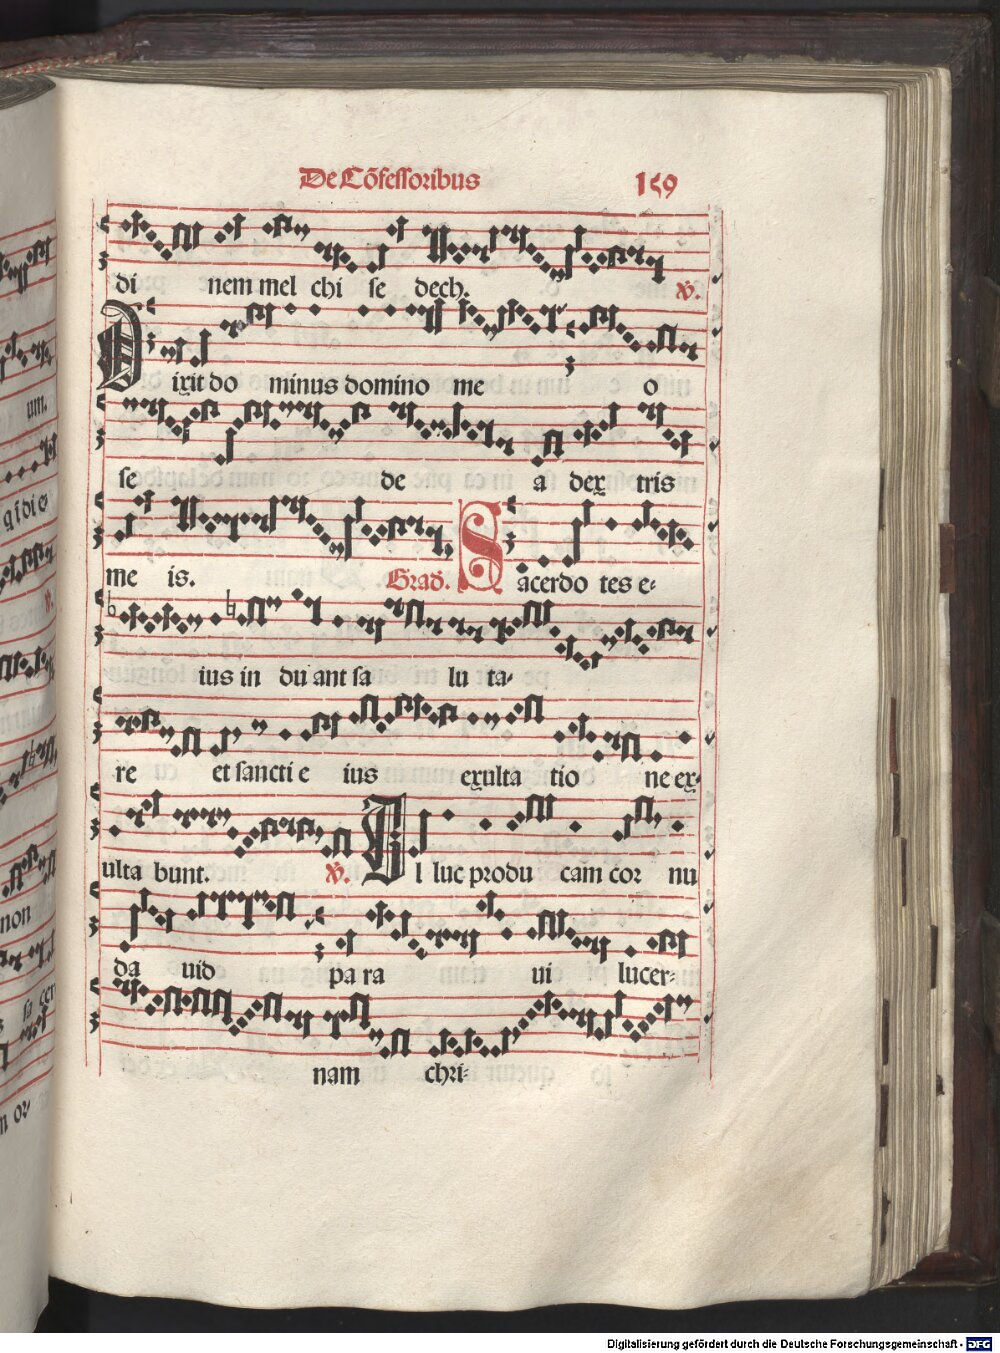 De Cōfessoribus 159
di nem mel chi se dech. ℣.
Dixit do minus domino me o
se de a dex tris
me is. Grad. Sacerdo tes e-
ius in du ant sa lu ta-
re et sancti e ius exulta tio ne ex-
ulta bunt. ℣. Il luc produ cam cor nu
da uid pa ra ui lucer-
nam chri-
um.
gidio
non
sa cer
Digitalisierung gefördert durch die Deutsche Forschungsgemeinschaft - DFG